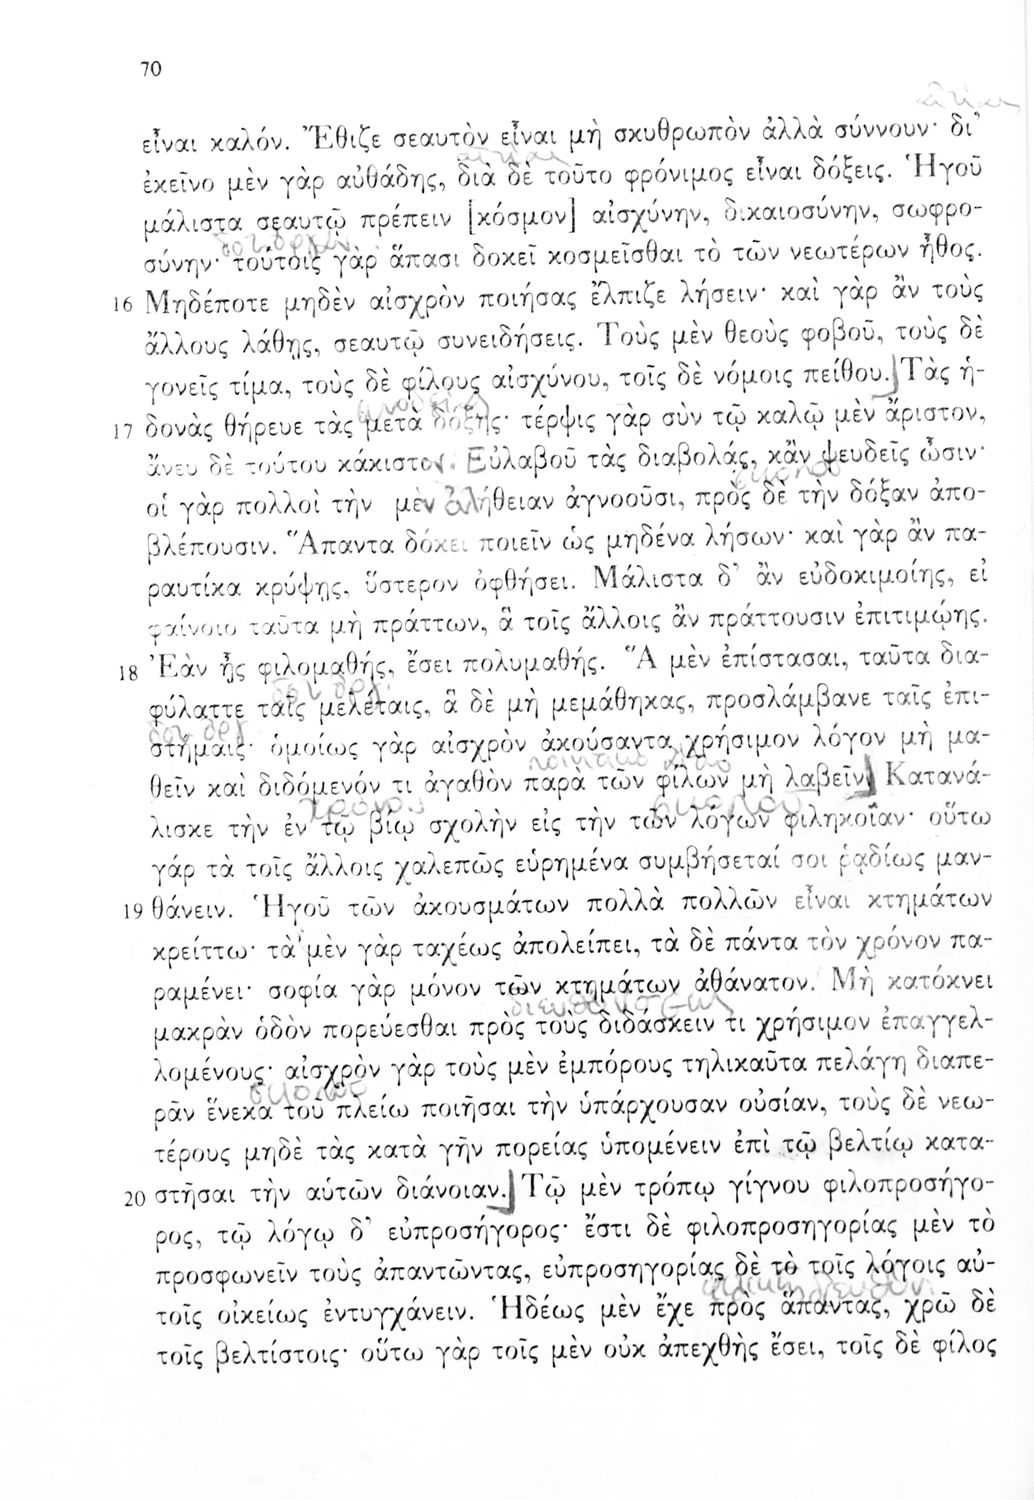 70
εἶναι καλόν. Ἔθιζε σεαυτὸν εἶναι μὴ σκυθρωπὸν ἀλλὰ σύννουν· δι’
ἐκεῖνο μὲν γὰρ αὐθάδης, διὰ δὲ τοῦτο φρόνιμος εἶναι δόξεις. Ἡγοῦ
μάλιστα σεαυτῷ πρέπειν [κόσμον] αἰσχύνην, δικαιοσύνην, σωφρο-
σύνην· τούτοις γὰρ ἅπασι δοκεῖ κοσμεῖσθαι τὸ τῶν νεωτέρων ἦθος.
16 Μηδέποτε μηδὲν αἰσχρὸν ποιήσας ἔλπιζε λήσειν· καὶ γὰρ ἂν τοὺς
ἄλλους λάθῃς, σεαυτῷ συνειδήσεις. Τοὺς μὲν θεοὺς φοβοῦ, τοὺς δὲ
γονεῖς τίμα, τοὺς δὲ φίλους αἰσχύνου, τοῖς δὲ νόμοις πείθου. Τὰς ἡ-
17 δονὰς θήρευε τὰς μετὰ δόξης· τέρψις γὰρ σὺν τῷ καλῷ μὲν ἄριστον,
ἄνευ δὲ τούτου κάκιστον. Εὐλαβοῦ τὰς διαβολάς, κἂν ψευδεῖς ὦσιν·
οἱ γὰρ πολλοὶ τὴν μὲν ἀλήθειαν ἀγνοοῦσι, πρὸς δὲ τὴν δόξαν ἀπο-
βλέπουσιν. Ἅπαντα δόκει ποιεῖν ὡς μηδένα λήσων· καὶ γὰρ ἂν πα-
ραυτίκα κρύψῃς, ὕστερον ὀφθήσει. Μάλιστα δ’ ἂν εὐδοκιμοίης, εἰ
φαίνοιο ταῦτα μὴ πράττων, ἃ τοῖς ἄλλοις ἂν πράττουσιν ἐπιτιμῴης.
18 Ἐὰν ᾖς φιλομαθής, ἔσει πολυμαθής. Ἃ μὲν ἐπίστασαι, ταῦτα δια-
φύλαττε ταῖς μελέταις, ἃ δὲ μὴ μεμάθηκας, προσλάμβανε ταῖς ἐπι-
στήμαις· ὁμοίως γὰρ αἰσχρὸν ἀκούσαντα χρήσιμον λόγον μὴ μα-
θεῖν καὶ διδόμενόν τι ἀγαθὸν παρὰ τῶν φίλων μὴ λαβεῖν. Κατανά-
λισκε τὴν ἐν τῷ βίῳ σχολὴν εἰς τὴν τῶν λόγων φιληκοΐαν· οὕτω
γάρ τὰ τοῖς ἄλλοις χαλεπῶς εὑρημένα συμβήσεταί σοι ῥᾳδίως μαν-
19 θάνειν. Ἡγοῦ τῶν ἀκουσμάτων πολλὰ πολλῶν εἶναι κτημάτων
κρείττω· τὰ μὲν γὰρ ταχέως ἀπολείπει, τὰ δὲ πάντα τὸν χρόνον πα-
ραμένει· σοφία γὰρ μόνον τῶν κτημάτων ἀθάνατον. Μὴ κατόκνει
μακρὰν ὁδὸν πορεύεσθαι πρὸς τοὺς διδάσκειν τι χρήσιμον ἐπαγγελ-
λομένους· αἰσχρὸν γὰρ τοὺς μὲν ἐμπόρους τηλικαῦτα πελάγη διαπε-
ρᾶν ἕνεκα τοῦ πλείω ποιῆσαι τὴν ὑπάρχουσαν οὐσίαν, τοὺς δὲ νεω-
τέρους μηδὲ τὰς κατὰ γῆν πορείας ὑπομένειν ἐπὶ τῷ βελτίω κατα-
20 στῆσαι τὴν αὑτῶν διάνοιαν. Τῷ μὲν τρόπῳ γίγνου φιλοπροσήγο-
ρος, τῷ λόγῳ δ’ εὐπροσήγορος· ἔστι δὲ φιλοπροσηγορίας μὲν τὸ
προσφωνεῖν τοὺς ἀπαντῶντας, εὐπροσηγορίας δὲ τὸ τοῖς λόγοις αὐ-
τοῖς οἰκείως ἐντυγχάνειν. Ἡδέως μὲν ἔχε πρὸς ἅπαντας, χρῶ δὲ
τοῖς βελτίστοις· οὕτω γὰρ τοῖς μὲν οὐκ ἀπεχθὴς ἔσει, τοῖς δὲ φίλος